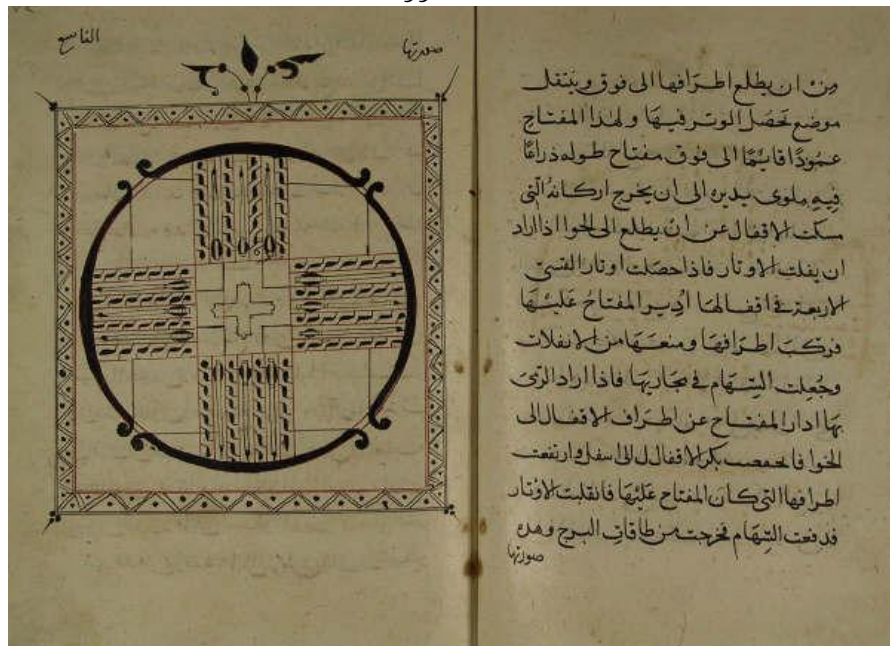 من ان يطلع اطرافها الى فوق وينتقل
موضع تحصل الوتر فيها ولهذا المفتاح
عمودًا قايمًا الى فوق مفتاح طوله ذراعًا
فيه ملوى يديره الى ان يخرج اركانه التى
مسكت الاقفال عن ان يطلع الى الخوا اذا اراد
ان يفلت الاوتار فاذا حصلت اوتار القسى
الاربعة فى اقفالها ادير المفتاح عليها
فركب اطرافها ومنعها من الانفلات
وجعلت السهام فى مجاريها فاذا اراد الرمى
بها ادار المفتاح عن اطراف الاقفال الى
الخوا بكر الاقفال الى اسفل وارتفعت
اطرافها التى كان المفتاح عليها فانقلبت الاوتار
فدفعت السهام فخرجت من طاقات البرج وهذه
صورتها
صورتها